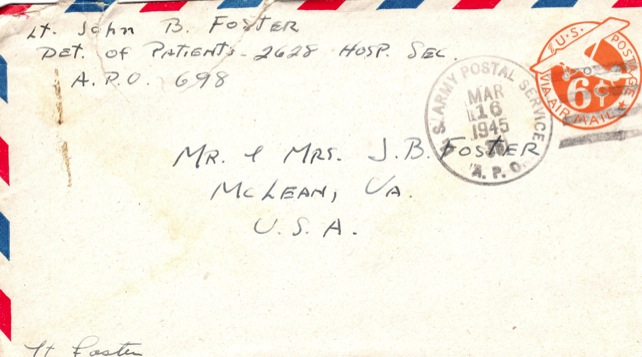 Lt. John B. Foster
Det. of Patients - 2628 Hosp. Sec.
A.P.O. 698
U.S. POSTAGE
6¢
VIA AIR MAIL
U.S. ARMY POSTAL SERVICE
MAR
16
1945
A.P.O.
Mr. & Mrs. J.B. Foster
McLean, Va.
U.S.A.
Lt Foster